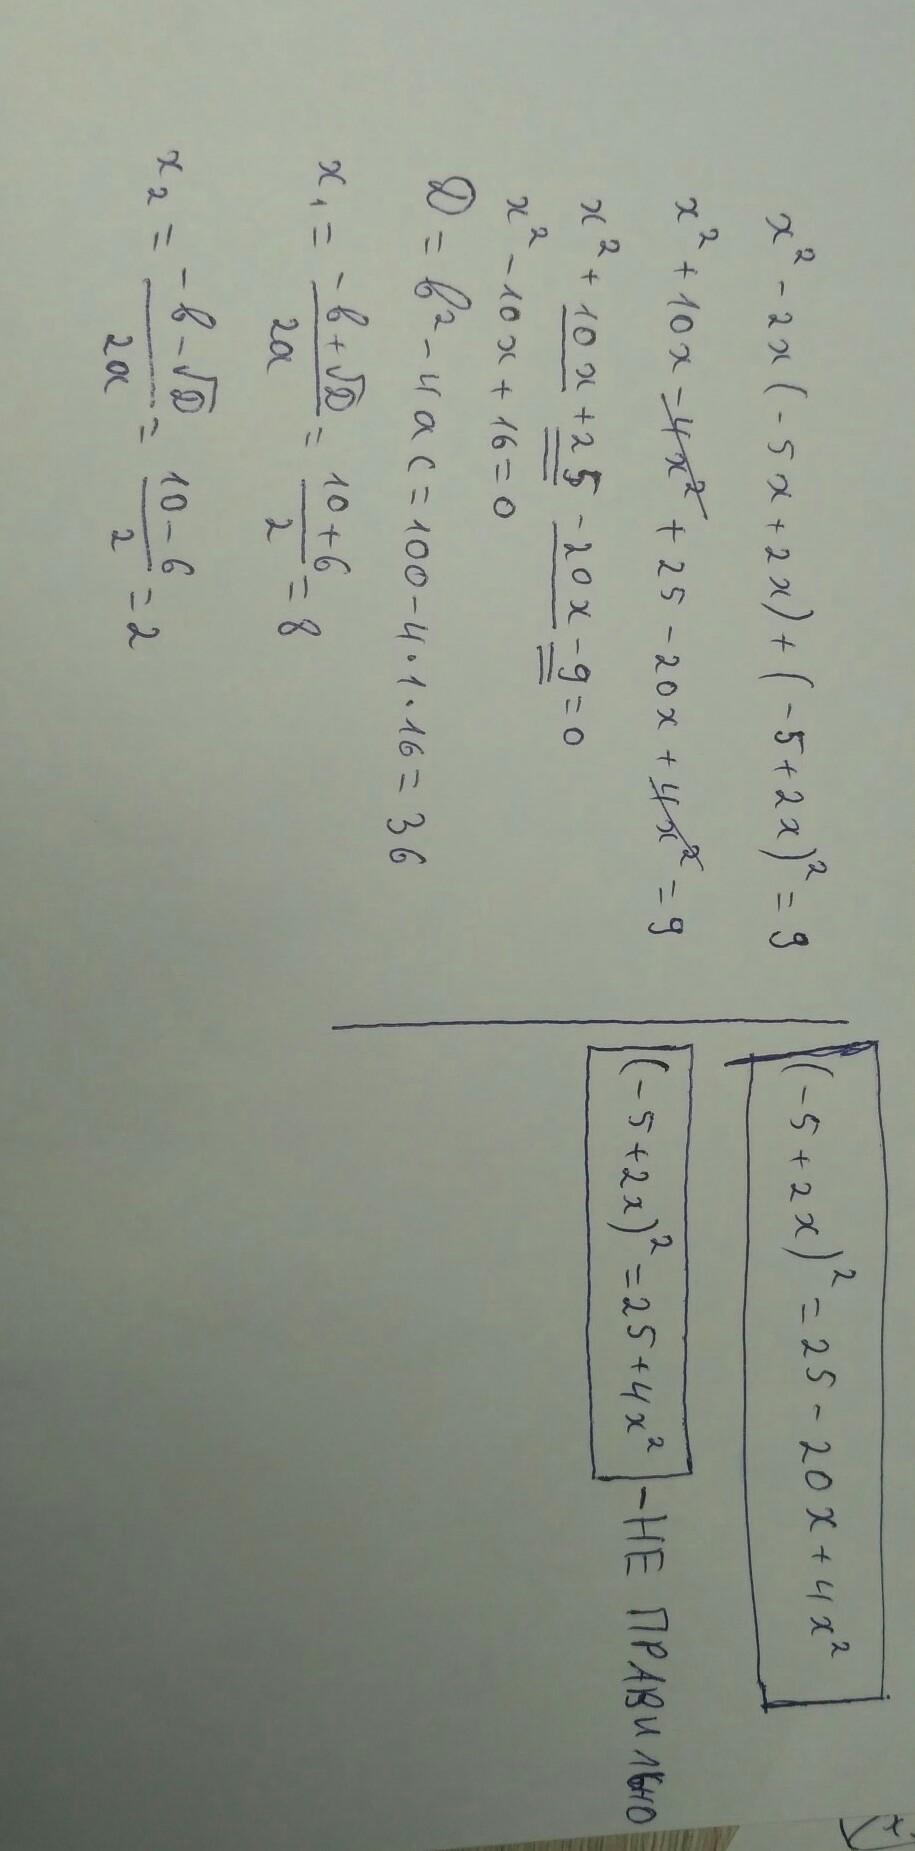 x² - 2x(-5x + 2x) + (-5 + 2x)² = 9
x² + 10x - 4x² + 25 - 20x + 4x² = 9
x² + 10x + 25 - 20x - 9 = 0
x² - 10x + 16 = 0
D = b² - 4ac = 100 - 4·1·16 = 36
x₁ = (-b + √D)/2a = (10 + 6)/2 = 8
x₂ = (-b - √D)/2a = (10 - 6)/2 = 2
(-5 + 2x)² = 25 - 20x + 4x²
(-5 + 2x)² = 25 + 4x² - НЕ ПРАВИЛЬНО